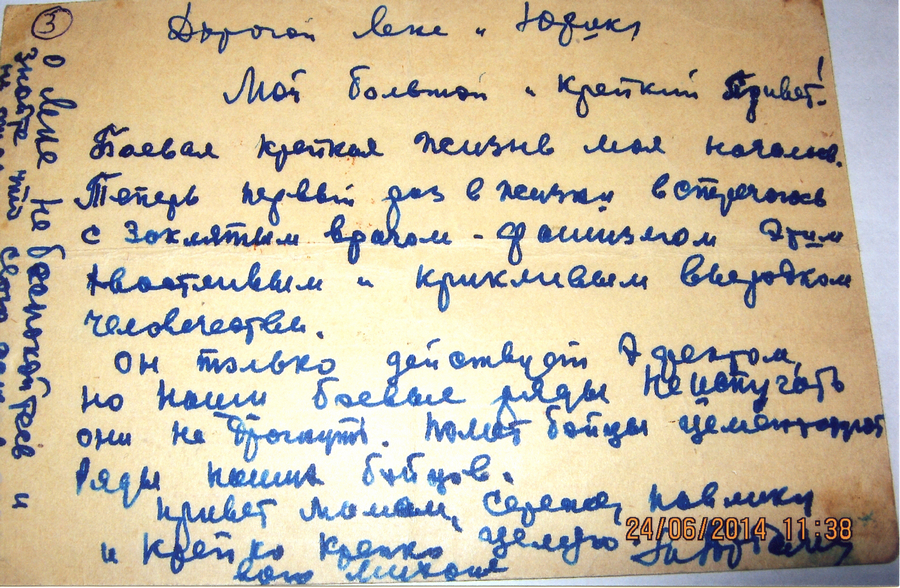 3
Дорогой Лене и Юрику
Мой большой и крепкий Привет!
Боевая крепкая жизнь моя началась.
Теперь первый раз в жизни встречаюсь
с Заклятым врагом - фашизмом Этим
хвастливым и крикливым выродком
человечества.
Он только действует Эфектом,
но наши боевые ряды не испугать
они не дрогнут. Полит бойцы цементируют
Ряды наших бойцов.
Привет мамам, Сереже, Павлику
и Крепко крепко целую
24/06/2014 11:38
О Лене не беспокойтесь и
знайте что